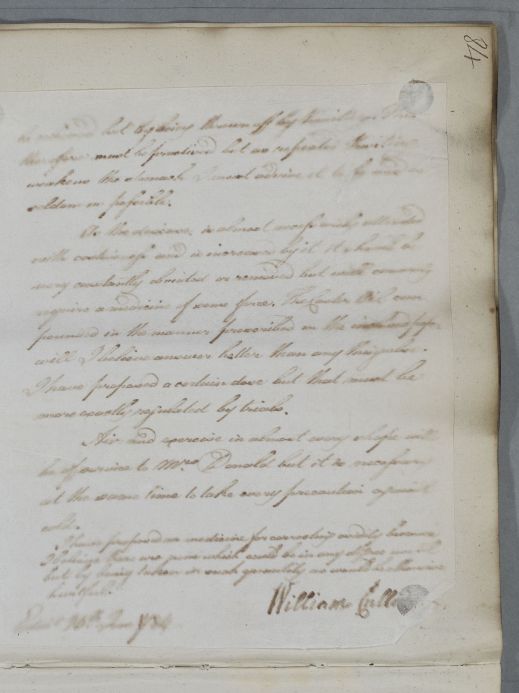 84
be removed but by being thrown off by Vomiting. This
therefore must be practised but as repeated Vomiting
weakens the stomach I must advise it to be used as
seldom as possible.
As the disease is almost constantly attended
with costiveness and is increased by it it should be
very constantly obviated or removed but will commonly
require a medicine of some force. The Castor Oil com
pounded in the manner prescribed on the inclosed paper
will I believe answer better than any thing else.
I have proposed a certain dose but that must be
more exactly regulated by trials.
Air and exercise in almost every shape will
be of service to Mrs Donald but it is necessary
at the same time to take every precaution against
cold.
I have proposed no medicine for correcting acidity because
I believe there are none which could be in any degree useful
but by being taken in such quantity as would be otherwise
hurtful.
William Cullen
Edinr 16th June 1784